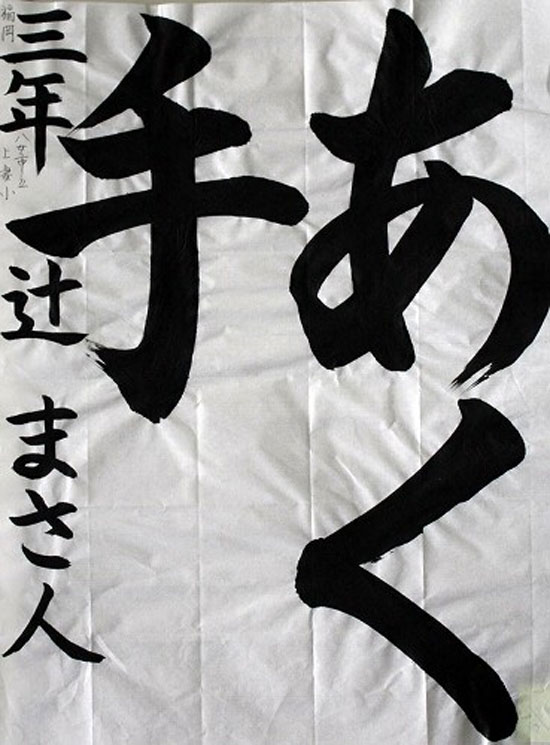 あく
手
三年 辻 まさ人
福岡
八女市立
上妻小